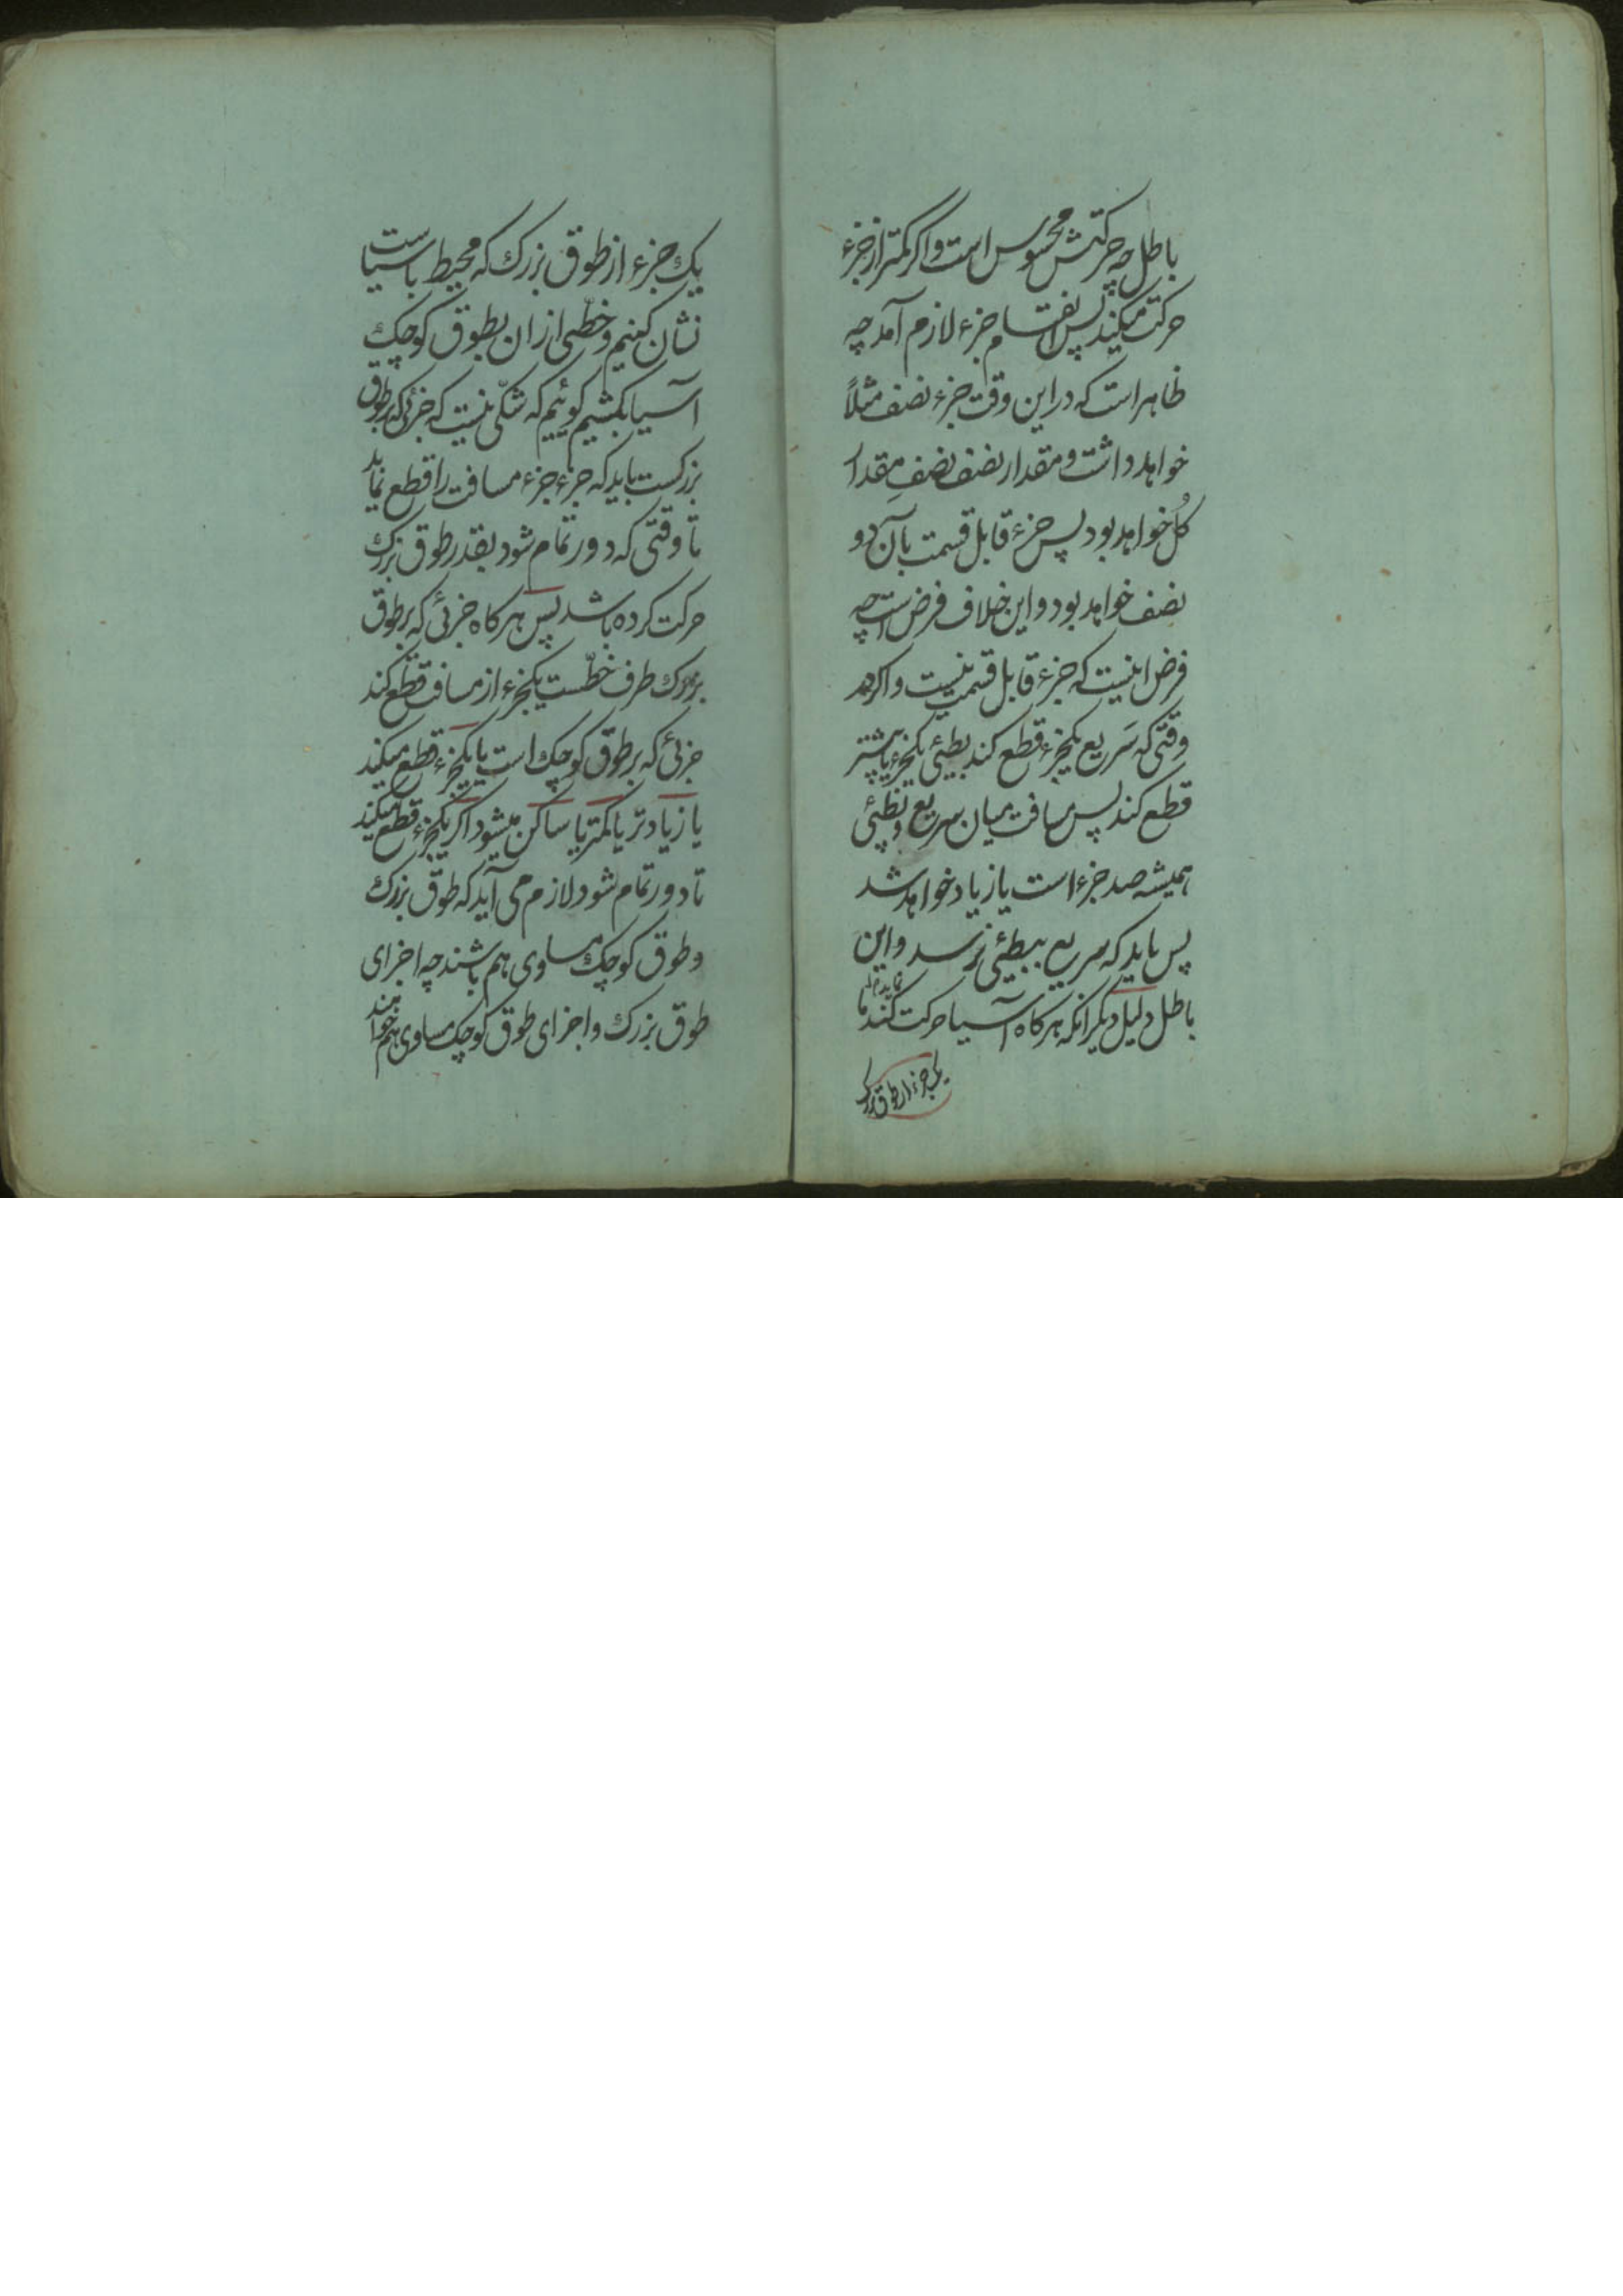 باطل چه حرکتش محسوس است و اگر کمتر از جزء
حرکت میکند پس انقسام جزء لازم آمد چه
ظاهر است که در این وقت جزء نصف مثلاً
خواهد داشت و مقدار نصف نصفِ مقدار
کُل خواهد بود پس جزء قابل قسمت بآن دو
نصف خواهد بود و این خلاف فرض است چه
فرض اینست که جزء قابل قسمت نیست و اگر
وقتی که سَریع یکجزء قطع کند بطیئی یکجزء یا بیشتر
قطع کند پس مسافت میان سریع و بطیئی
همیشه صد جزء است یا زیاد خواهد شد
پس باید که سریع ببطیئی نرسد و این
باطل دلیل دیگر آنکه هرکاه آسیا حرکت کند ما
یک جزء از طوق بزرک
یک جزء از طوق بزرک که محیط باسیاست
نشان کنیم و خطّی از ان بطوق کوچک
آسیا بکشیم کوئیم که شکّی نیست که جزئی که بر طوق
بزرکست باید که جزء جزء مسافت را قطع نماید
تا وقتی که دور تمام شود بقدر طوق بزرک
حرکت کرده باشد پس هرکاه جزئی که بر طوق
بزرک طرف خطّست یکجزء از مسافت قطع کند
جزئی که بر طوق کوچک است یا یکجزء قطع میکند
یا زیادتر یا کمتر یا ساکن میشود اکر یکجزء قطع میکند
تا دور تمام شود لازم می آید که طوق بزرک
و طوق کوچک مساوی هم باشند چه اجزای
طوق بزرک و اجزای طوق کوچک مساوی هم خواهند